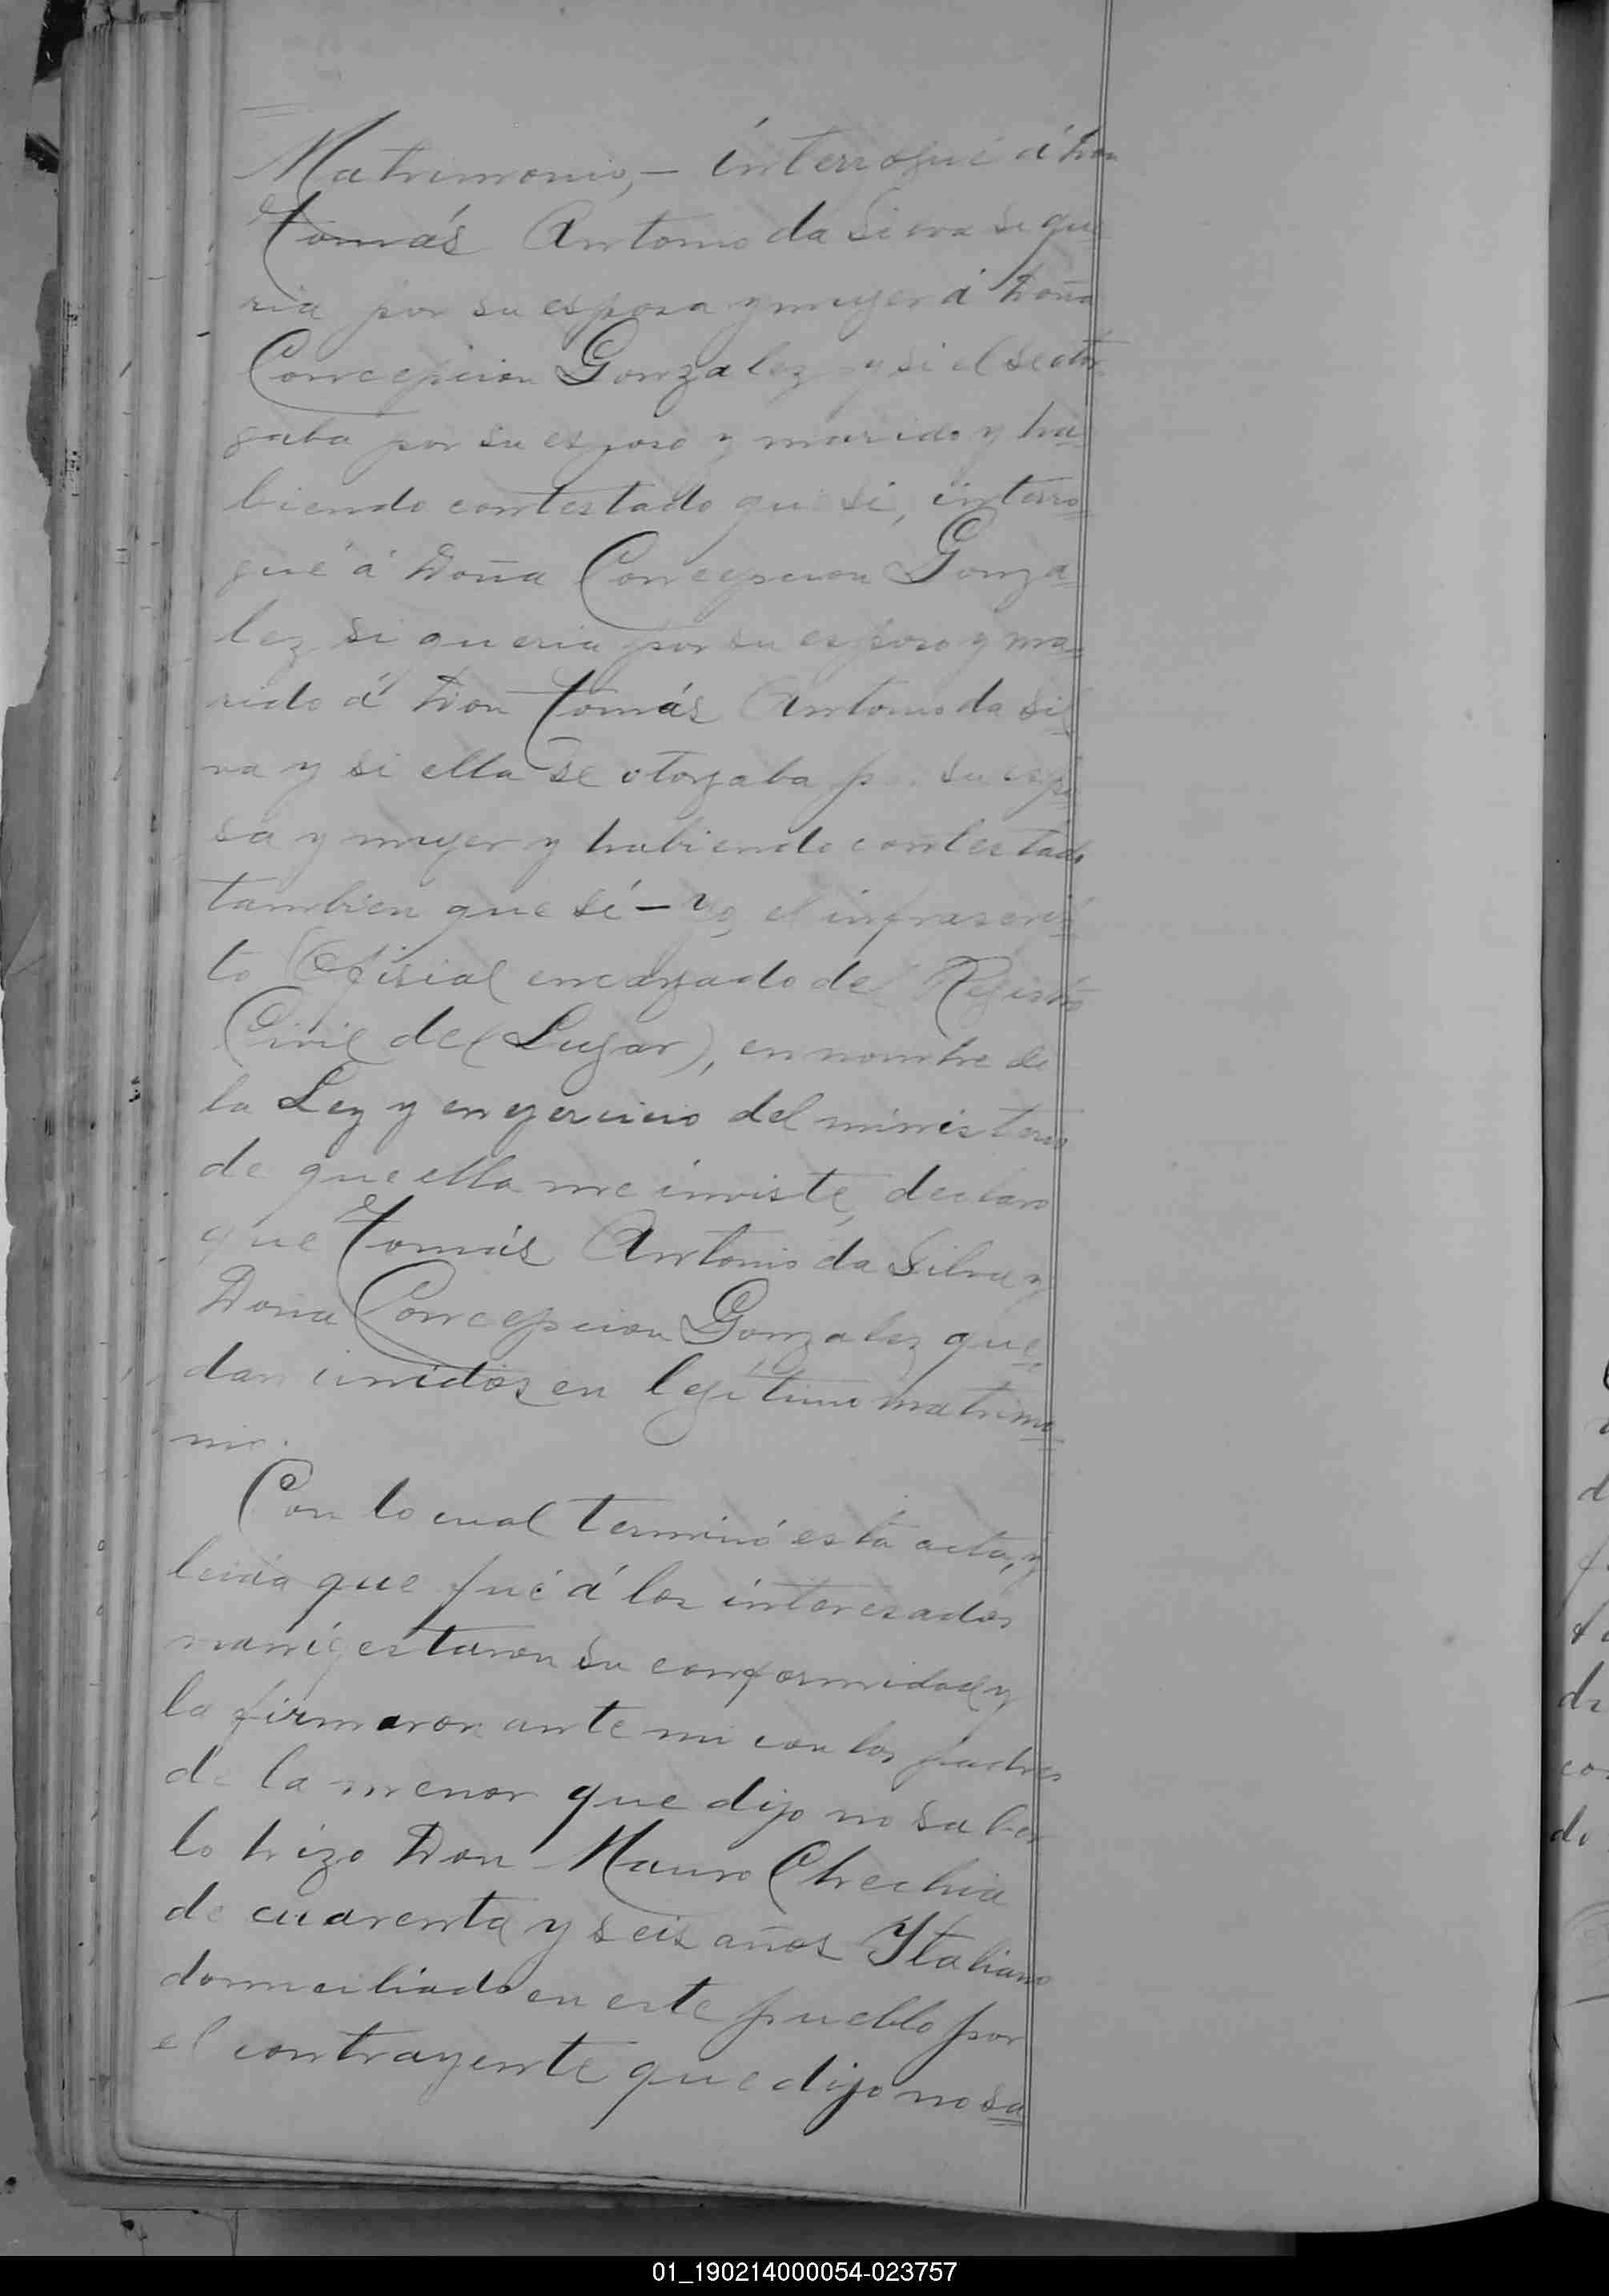 Matrimonio,— interrogué á Don
Tomás Antonio da Silva si que
ria por su esposa y mujer á Doña
Concepcion Gonzalez y si el se otor
gaba por su esposo y marido y ha
biendo contestado que si, interro
gué á Doña Concepcion Gonza
lez si queria por su esposo y ma
rido á Don Tomás Antonio da Sil
va y si ella se otorgaba por su espo
sa y mujer y habiendo contestado
tambien que sí — Yo, el infrascri
to Ofisial encargado del Registro
Civil del (Lugar), en nombre de
la Ley y en ejercicio del ministerio
de que ella me inviste, declaro
que Tomás Antonio da Silva y
Doña Concepcion Gonzalez que
dan unidos en legítimo matrimo
nio.
Con lo cual terminó esta acta, y
leida que fué á los interesados
manifestaron su conformidad y
la firmaron ante mi con los padres
de la menor que dijo no saber
lo hizo Don Mauro Chechia
de cuarenta y seis años Italiano
domiciliado en este pueblo por
el contrayente que dijo no sa
01_190214000054-023757